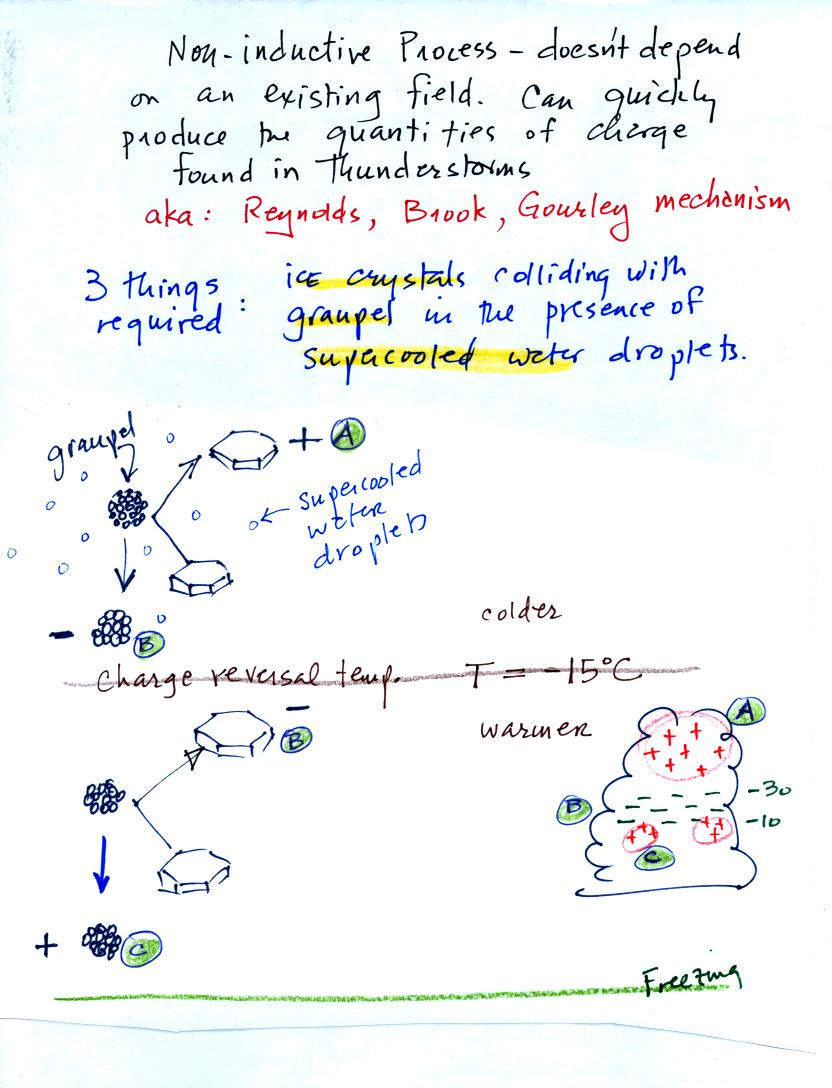 Non-inductive Process - doesn't depend
on an existing field. Can quickly
produce the quantities of charge
found in thunderstorms
aka: Reynolds, Brook, Gourley mechanism
3 things required : ice crystals colliding with
graupel in the presence of
supercooled water droplets.
graupel
+ A
supercooled
water
droplets
- B
colder
charge reversal temp. T = -15°C
warmer
- B
A
+ + + + + + + +
-30
B
-10
+ + + + + +
C
+ C
Freezing